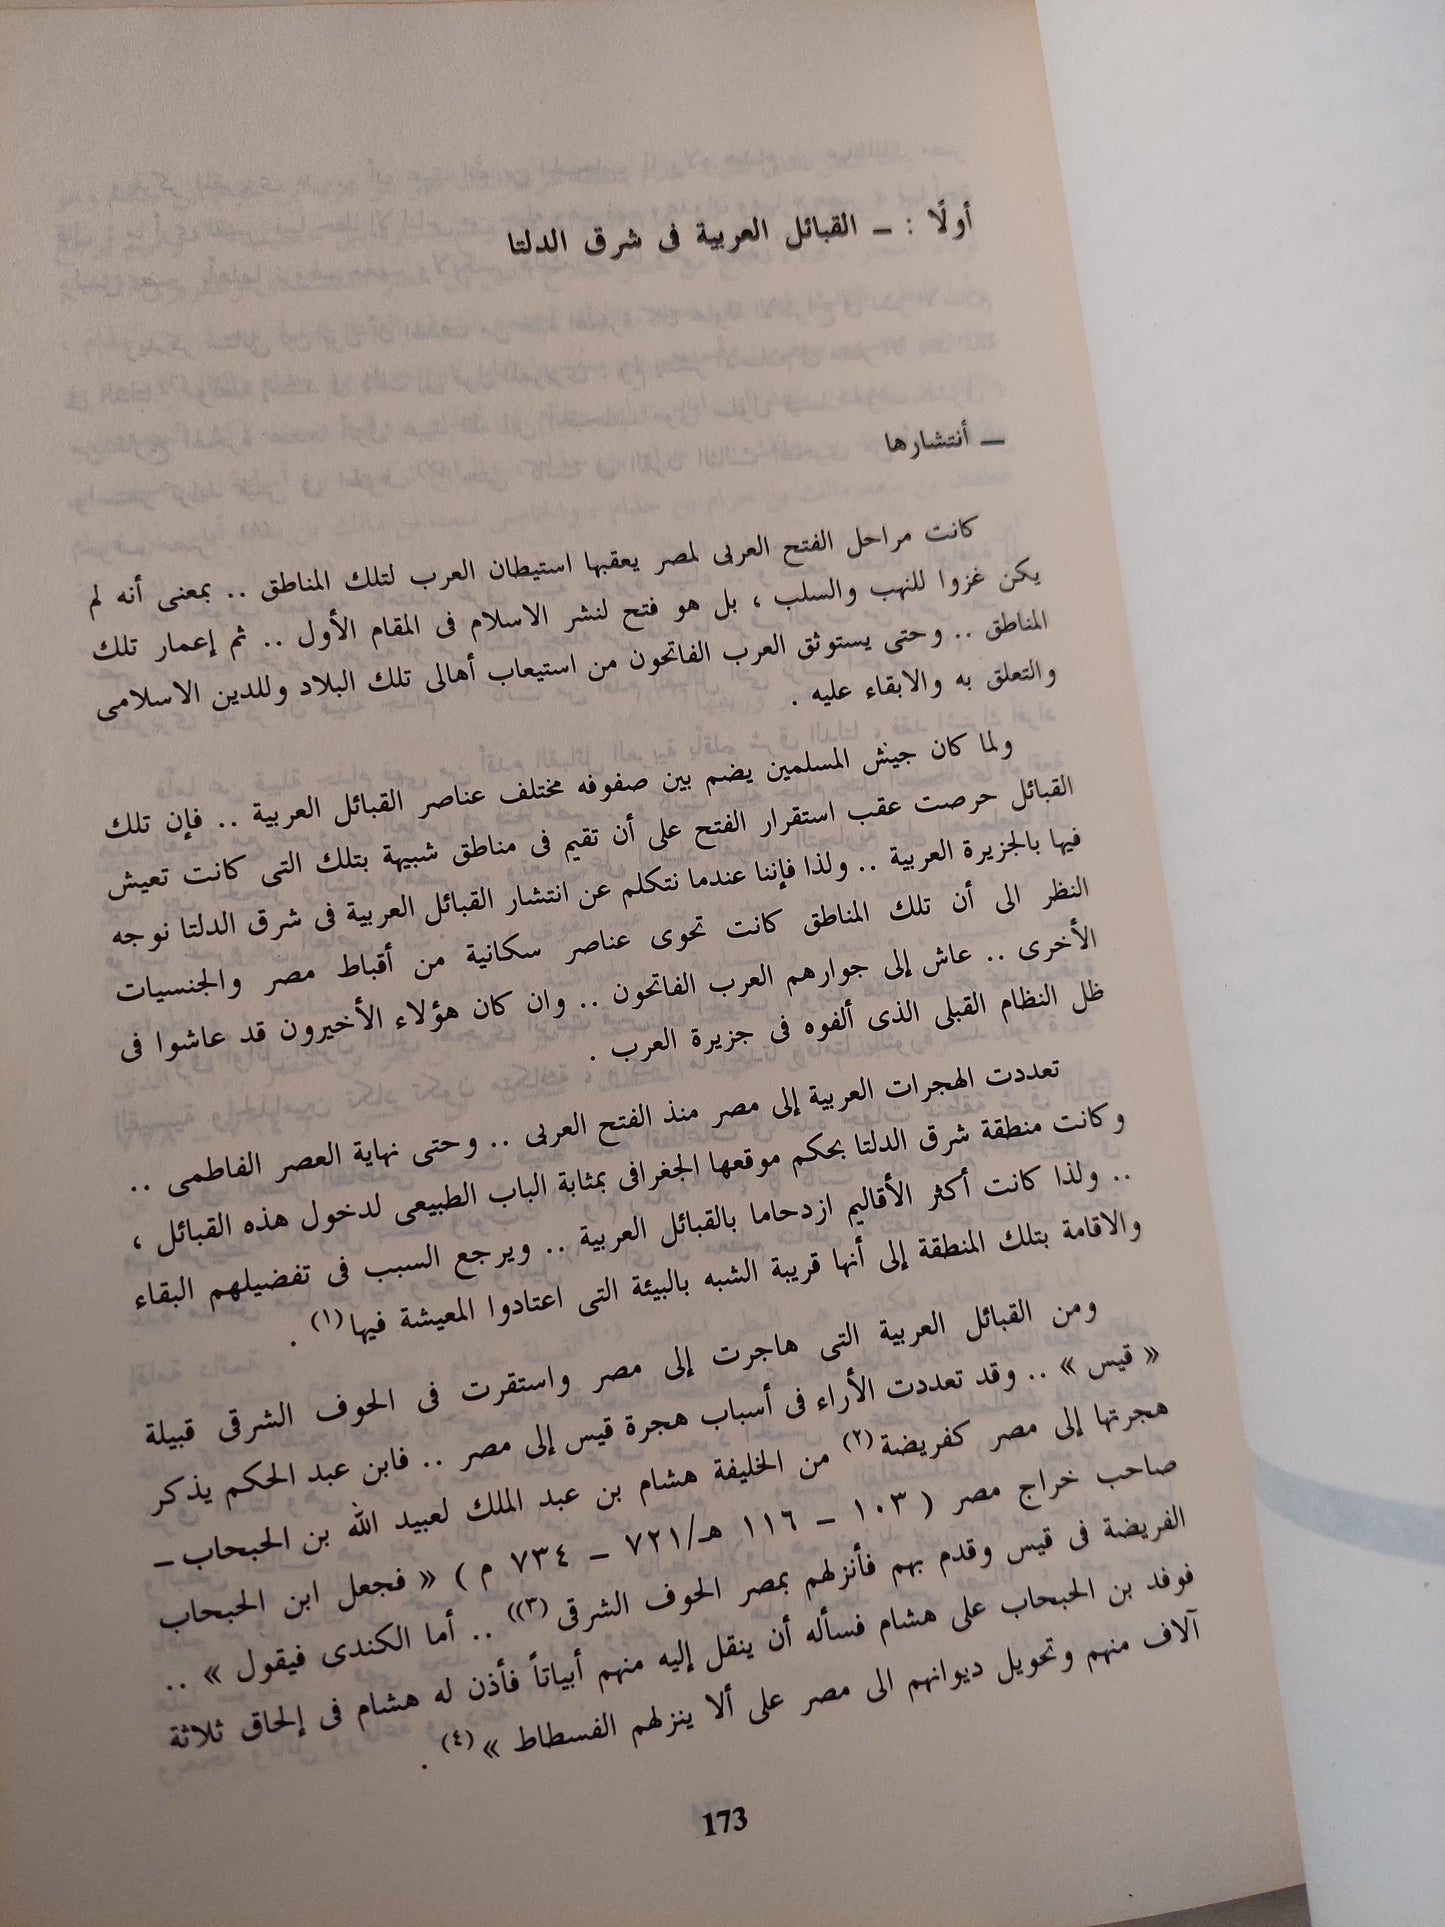 أولًا : ــ القبائل العربية فى شرق الدلتا
ــ أنتشارها
كانت مراحل الفتح العربى لمصر يعقبها استيطان العرب لتلك المناطق .. بمعنى أنه لم
يكن غزوا للنهب والسلب ، بل هو فتح لنشر الاسلام فى المقام الأول .. ثم إعمار تلك
المناطق .. وحتى يستوثق العرب الفاتحون من استيعاب أهالى تلك البلاد وللدين الاسلامى
والتعلق به والابقاء عليه .
ولما كان جيش المسلمين يضم بين صفوفه مختلف عناصر القبائل العربية .. فإن تلك
القبائل حرصت عقب استقرار الفتح على أن تقيم فى مناطق شبيهة بتلك التى كانت تعيش
فيها بالجزيرة العربية .. ولذا فإننا عندما نتكلم عن انتشار القبائل العربية فى شرق الدلتا نوجه
النظر الى أن تلك المناطق كانت تحوى عناصر سكانية من أقباط مصر والجنسيات
الأخرى .. عاش إلى جوارهم العرب الفاتحون .. وان كان هؤلاء الأخيرون قد عاشوا فى
ظل النظام القبلى الذى ألفوه فى جزيرة العرب .
تعددت الهجرات العربية إلى مصر منذ الفتح العربى .. وحتى نهاية العصر الفاطمى ..
وكانت منطقة شرق الدلتا بحكم موقعها الجغرافى بمثابة الباب الطبيعى لدخول هذه القبائل ،
.. ولذا كانت أكثر الأقاليم ازدحاما بالقبائل العربية .. ويرجع السبب فى تفضيلهم البقاء
والاقامة بتلك المنطقة إلى أنها قريبة الشبه بالبيئة التى اعتادوا المعيشة فيها(١) .
ومن القبائل العربية التى هاجرت إلى مصر واستقرت فى الحوف الشرقى قبيلة
« قيس » .. وقد تعددت الأراء فى أسباب هجرة قيس إلى مصر .. فابن عبد الحكم يذكر
هجرتها إلى مصر كفريضة(٢) من الخليفة هشام بن عبد الملك لعبيد الله بن الحبحاب ــ
صاحب خراج مصر ( ١٠٣ ــ ١١٦ هـ/٧٢١ ــ ٧٣٤ م ) « فجعل ابن الحبحاب
الفريضة فى قيس وقدم بهم فأنزلهم بمصر الحوف الشرقى (٣)» .. أما الكندى فيقول » ..
فوفد بن الحبحاب على هشام فسأله أن ينقل إليه منهم أبياتاً فأذن له هشام فى إلحاق ثلاثة
آلاف منهم وتحويل ديوانهم الى مصر على ألا ينزلهم الفسطاط » (٤) .
173